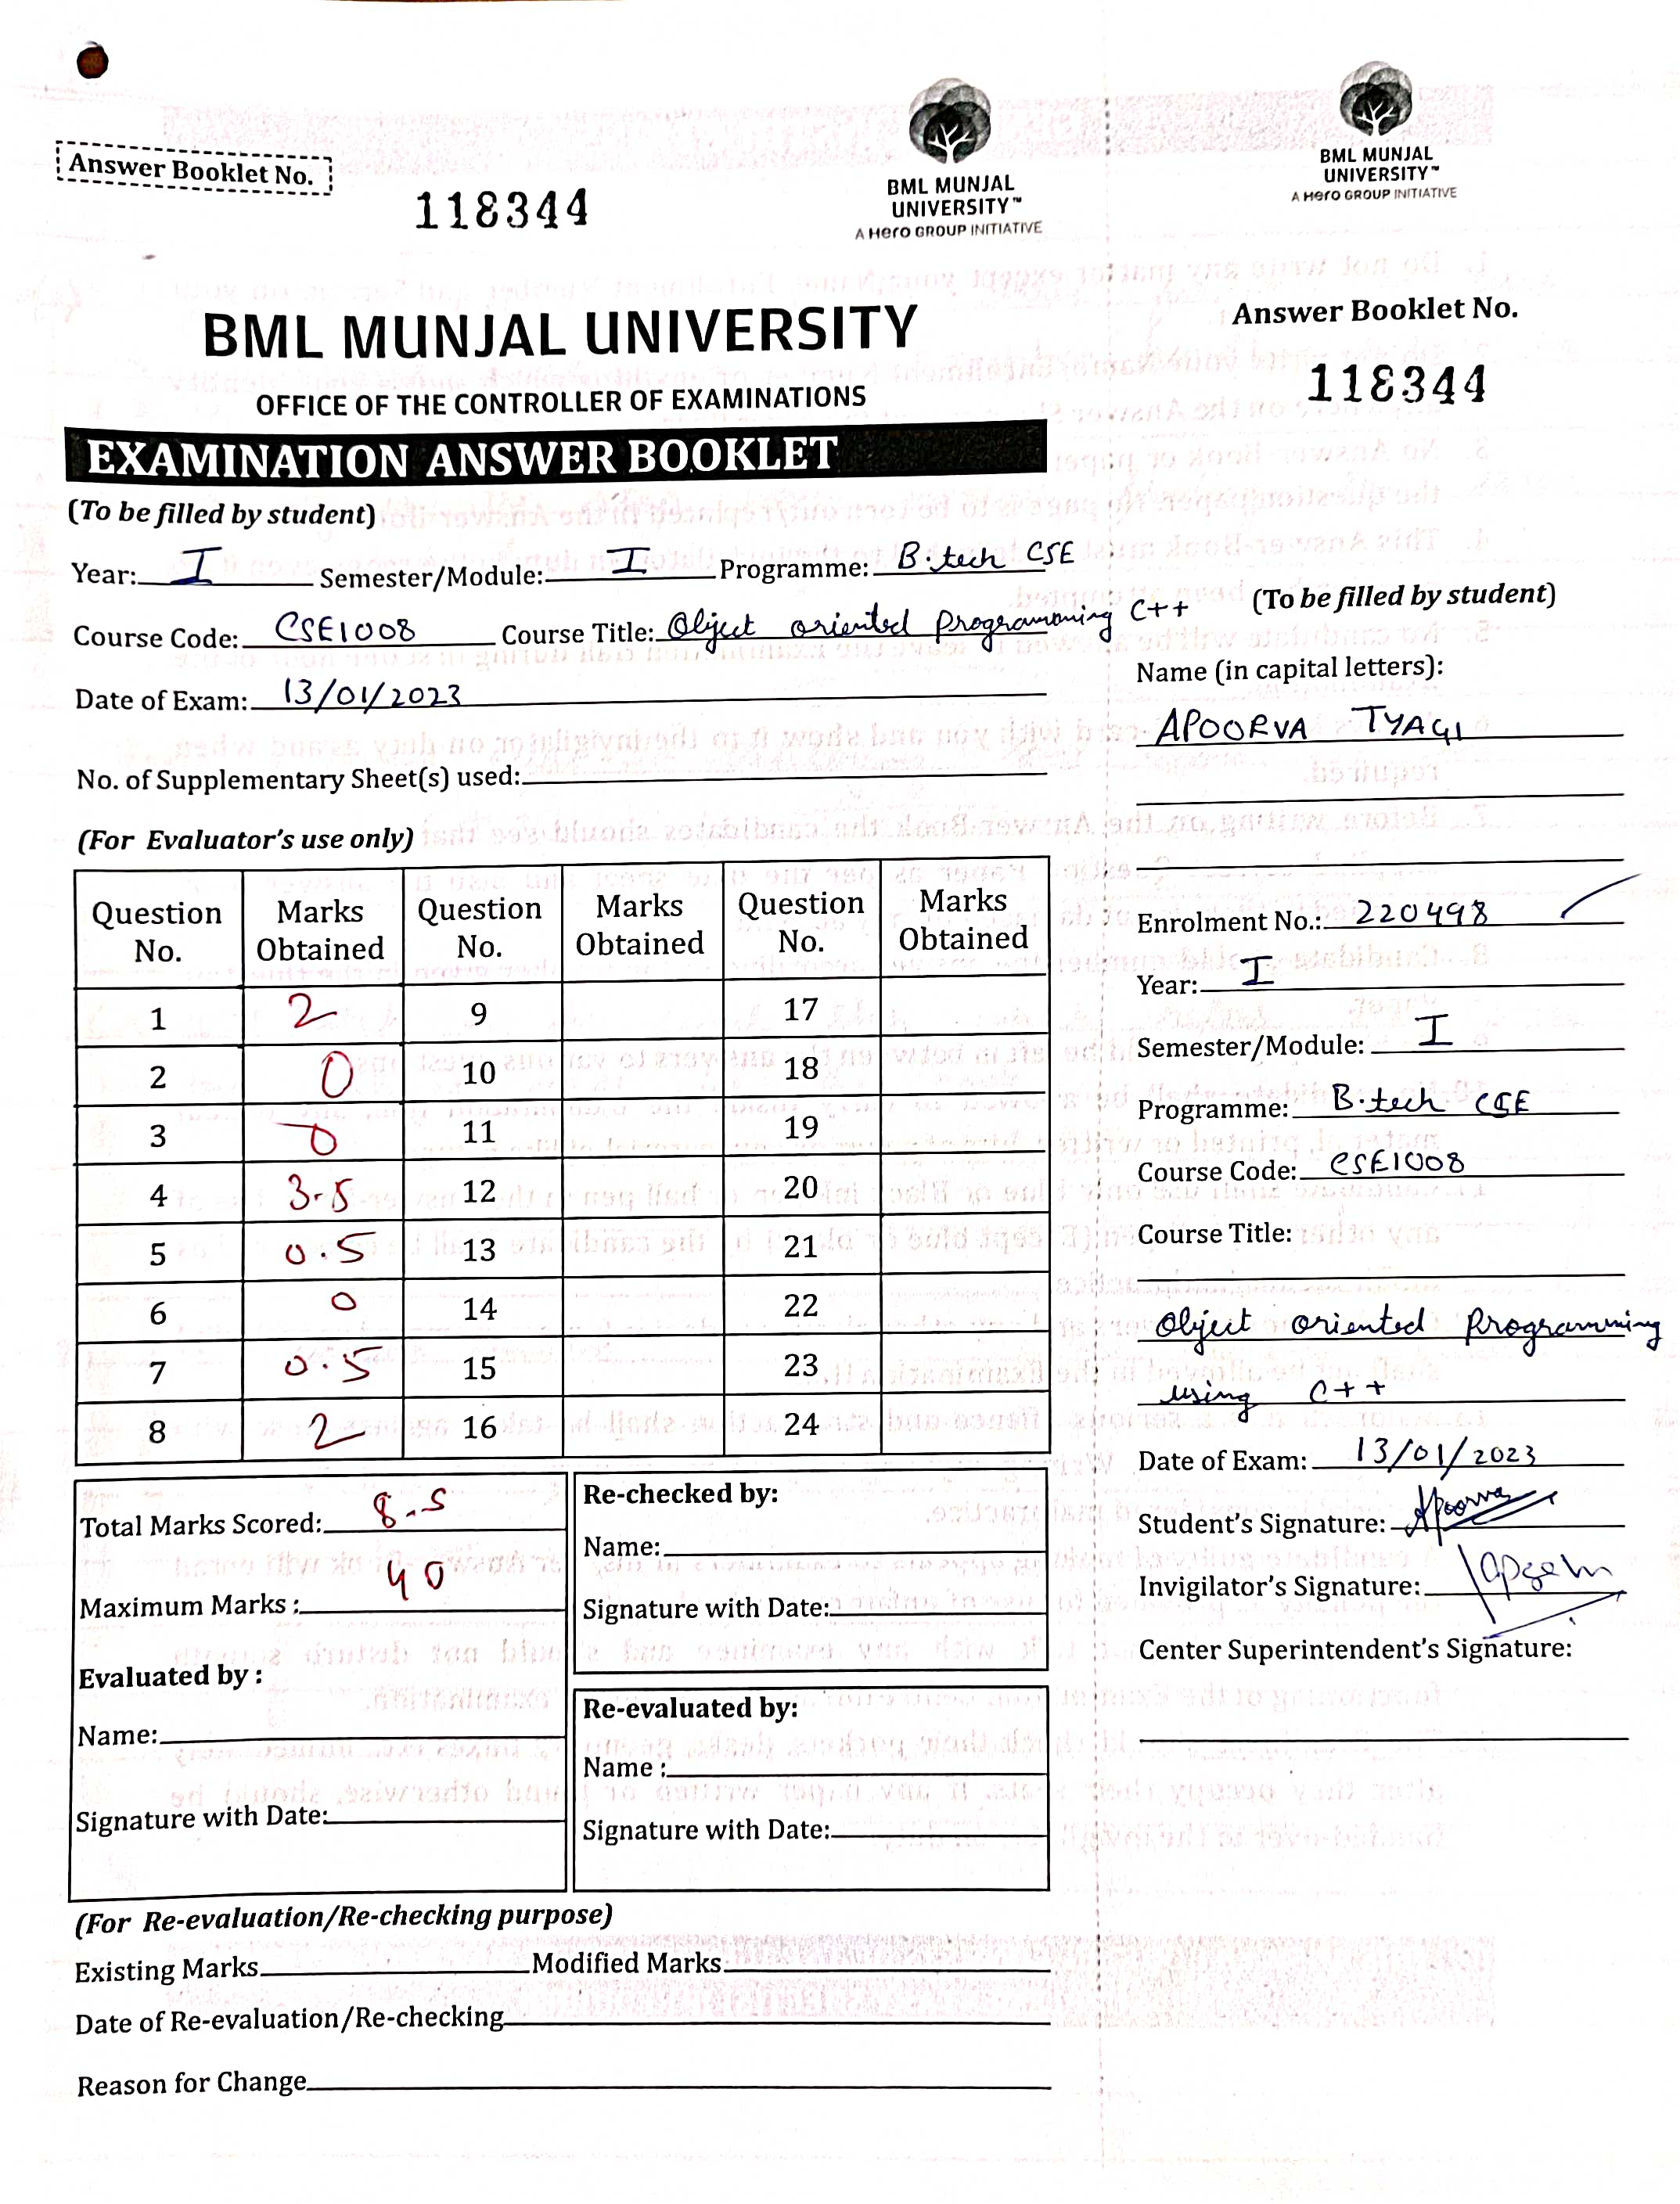 Answer Booklet No.
118344
BML MUNJAL
UNIVERSITY™
A Hero GROUP INITIATIVE
BML MUNJAL
UNIVERSITY™
A Hero GROUP INITIATIVE
BML MUNJAL UNIVERSITY
OFFICE OF THE CONTROLLER OF EXAMINATIONS
EXAMINATION ANSWER BOOKLET
(To be filled by student)
Year: I Semester/Module: I Programme: B.tech CSE
Course Code: CSE1008 Course Title: Object oriented Programming C++
Date of Exam: 13/01/2023
No. of Supplementary Sheet(s) used:
(For Evaluator's use only)
Question No. Marks Obtained Question No. Marks Obtained Question No. Marks Obtained
1 2 9 17
2 0 10 18
3 0 11 19
4 3.5 12 20
5 0.5 13 21
6 0 14 22
7 0.5 15 23
8 2 16 24
Total Marks Scored: 8.5
Maximum Marks : 40
Evaluated by :
Name:
Signature with Date:
Re-checked by:
Name:
Signature with Date:
Re-evaluated by:
Name :
Signature with Date:
(For Re-evaluation/Re-checking purpose)
Existing Marks Modified Marks
Date of Re-evaluation/Re-checking
Reason for Change
Answer Booklet No.
118344
(To be filled by student)
Name (in capital letters):
APOORVA TYAGI
Enrolment No.: 220498
Year: I
Semester/Module: I
Programme: B.tech CSE
Course Code: CSE1008
Course Title:
Object oriented Programming
using C++
Date of Exam: 13/01/2023
Student's Signature: Apoorva
Invigilator's Signature:
Center Superintendent's Signature: